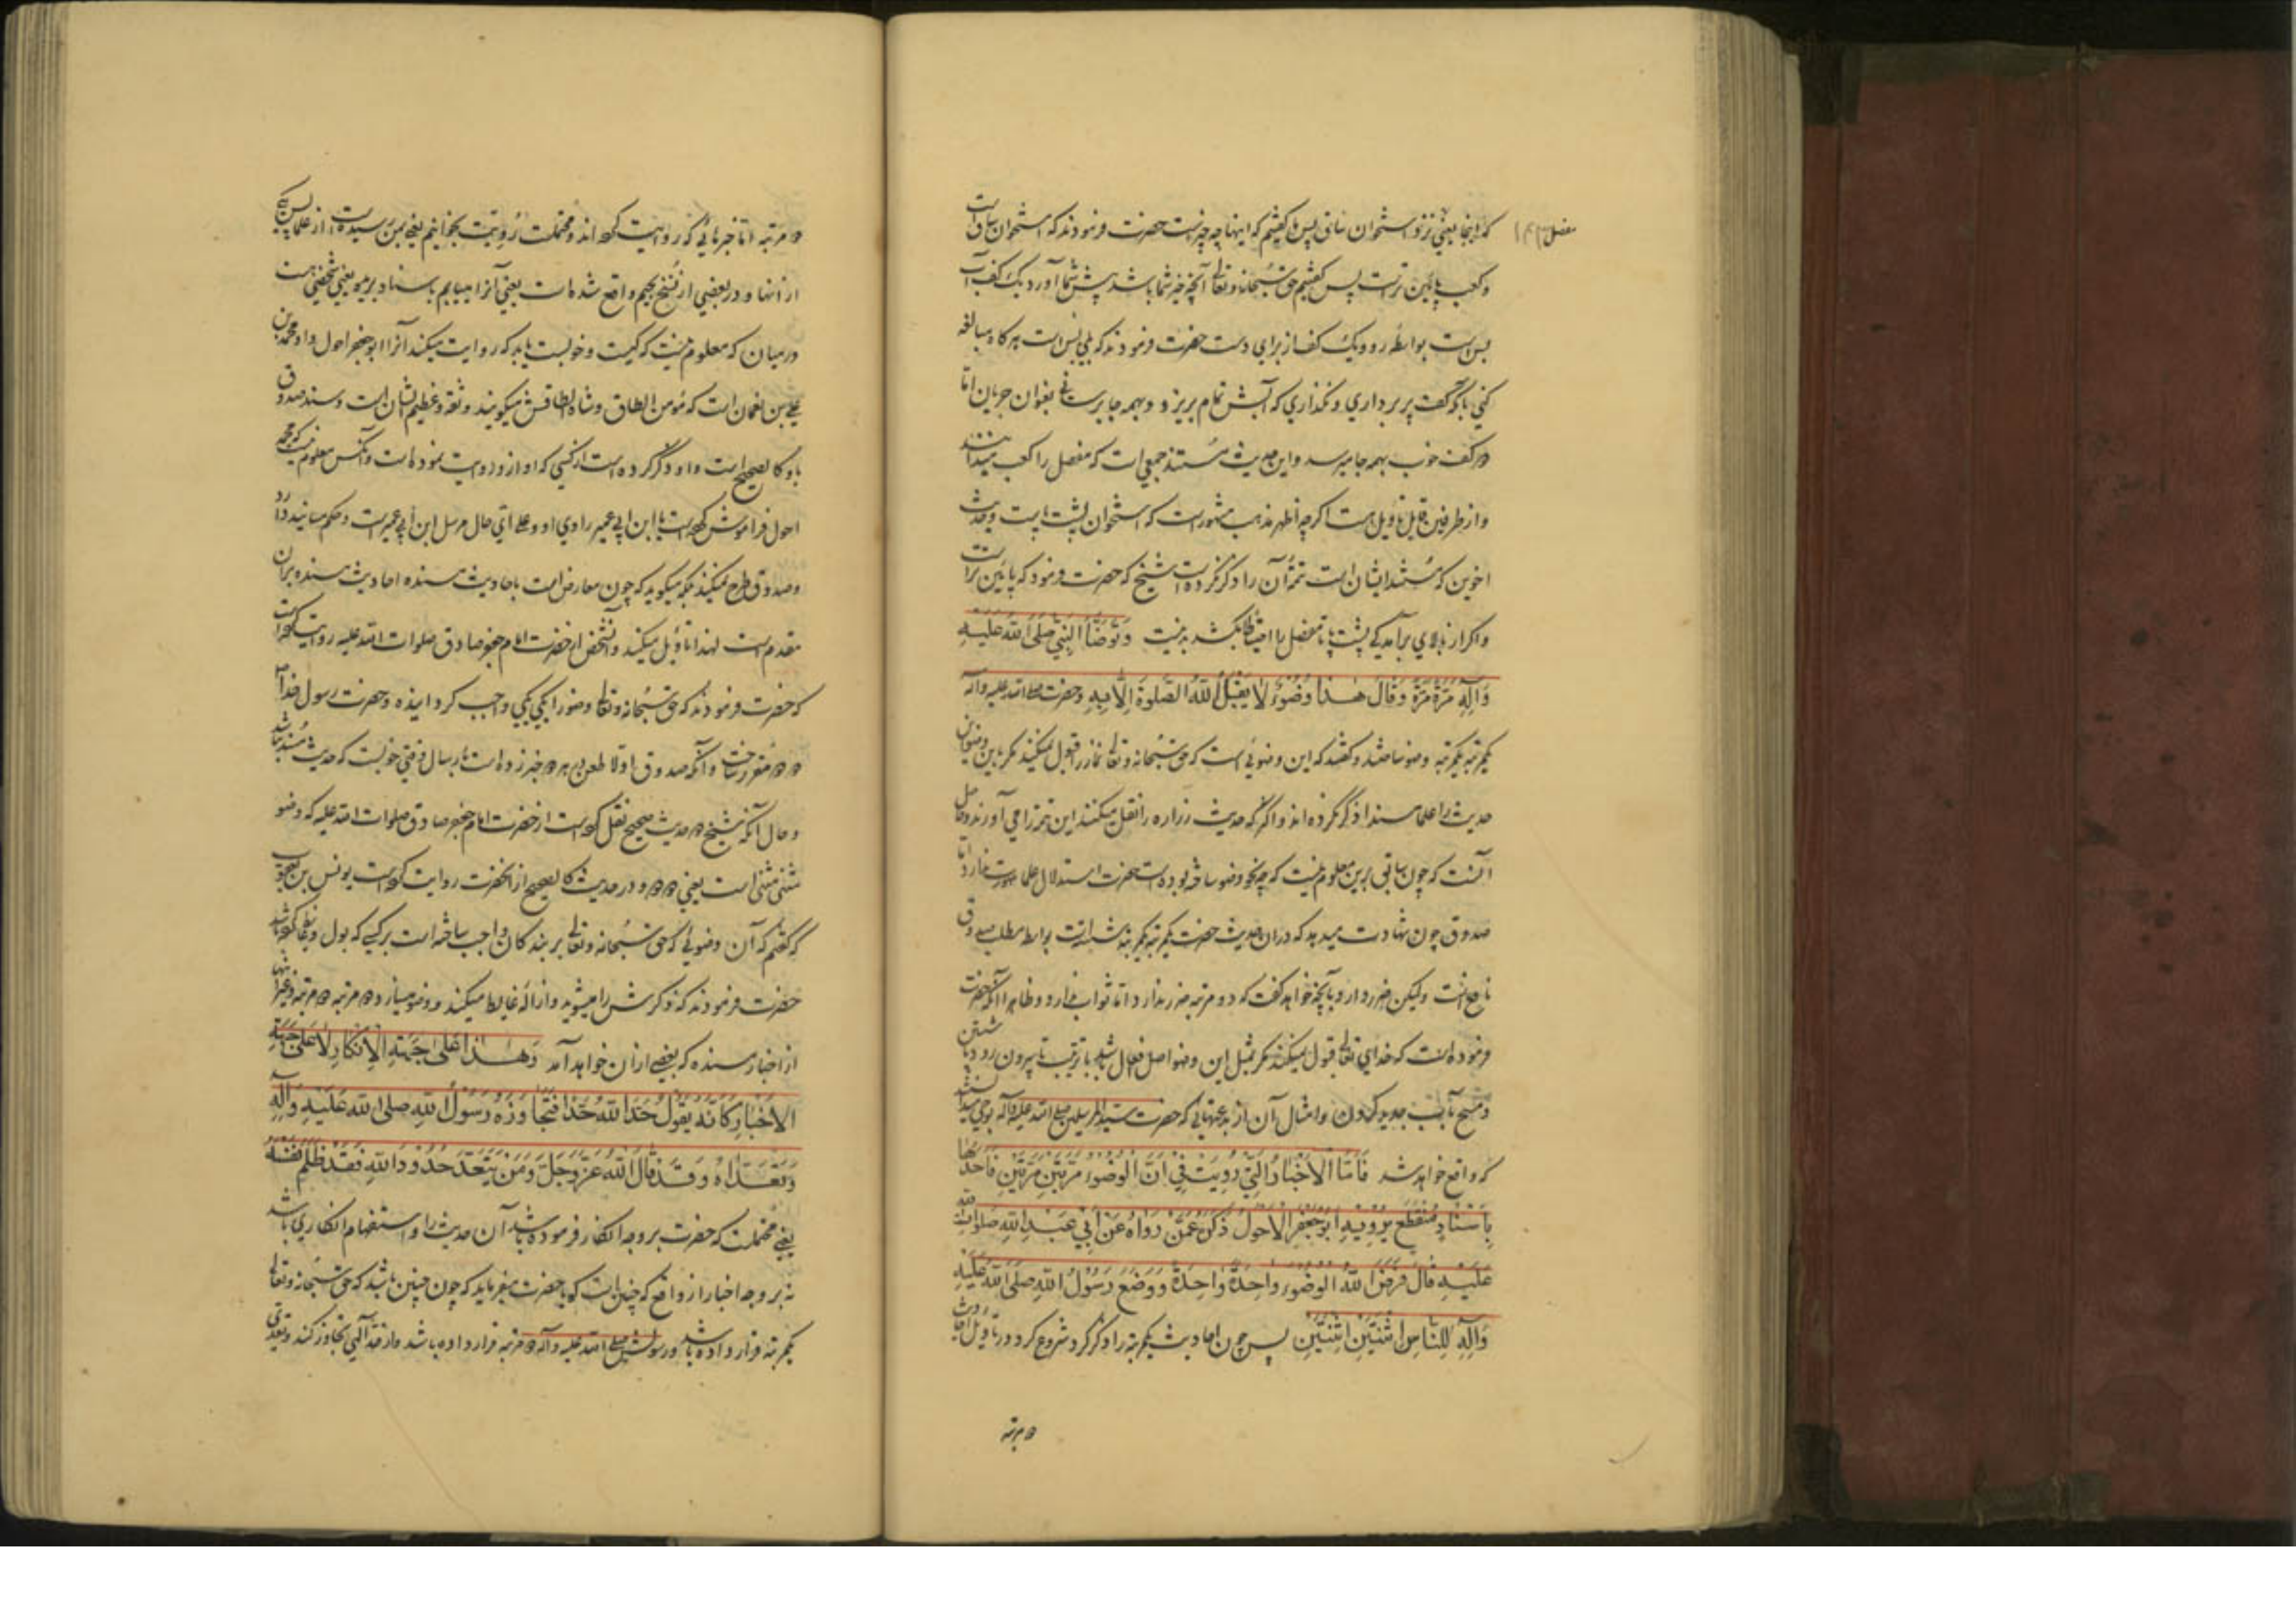 که اینجا یعنی نزد استخوان ساق پس ما گفتیم که اینها چه چیز است حضرت فرمودند که استخوان ساق است
مفصل
و کعب پائین تر است پس گفتیم حق سبحانه و تعالی آنچه خیر شما باشد پیش شما آورد یک کف آب
بس است بواسطه رو و یک کف از برای دست حضرت فرمودند که بلی بس است هر گاه مبالغه
کنی که کف پر برداری و نگذاری که آبش تمام بریزد و بهمه جا برسانی بعنوان جریان اما
دو کف خوب بهمه جا میرسد و این حدیث مستند جمعی است که مفصل را کعب میدانند
و از طرفین قابل تأویل هست اگر چه أظهر مذهب مشهور است که استخوان پشت پاست و حدیث
اخوین که مستند ایشان است تتمه آن را ذکر نکرده است شیخ که حضرت فرمود که پائین تر است
و اگر از بالای برآمدگی پشت پا تا مفصل را احتیاطا بکشد بد نیست وَتَوَضَّأَ النَّبِيُّ صَلَّى اللَّهُ عَلَيْهِ
وَآلِهِ مَرَّةً مَرَّةً وَقَالَ هٰذَا وُضُوءٌ لَا يَقْبَلُ اللَّهُ الصَّلٰوةَ إِلَّا بِهِ و حضرت صلی الله علیه و آله
یکمرتبه یکمرتبه وضو ساختند و گفتند که این وضوئی است که حق سبحانه و تعالی نماز را قبول نمیکند مگر باین وضو و این
حدیث را علما مسندا ذکر نکرده اند و اکثر که حدیث زراره را نقل میکنند این تتمه را می آورند و حاصل
آنست که چون سابق برین معلوم نیست که چه نحو وضو ساخته بوده است حضرت استدلال علما صورت ندارد اما
صدوق چون شهادت میدهد که در این حدیث حضرت یکمرتبه یکمرتبه شسته است بواسطه مطلب صدوق
نافع است و لیکن ضرر دارد با آنچه خواهد گفت که دو مرتبه ضرر ندارد اما ثواب ندارد و ظاهرا آنکه حضرت
فرموده است که خدای تعالی قبول نمیکند مگر بمثل این وضو اصل افعال باشد با ترتیب تا بیرون رود پا شستن
و مسح بآب جدید کردن و امثال آن از بدعتهائی که حضرت سید المرسلین صلی الله علیه و آله بوحی میدانستند
که واقع خواهد شد فَأَمَّا الْأَخْبَارُ الَّتِي رُوِيَتْ فِي أَنَّ الْوُضُوءَ مَرَّتَيْنِ مَرَّتَيْنِ فَأَحَدُهَا
بِإِسْنَادٍ مُنْقَطِعٍ يَرْوِيهِ أَبُو جَعْفَرٍ الْأَحْوَلُ ذَكَرَهُ عَمَّنْ رَوَاهُ عَنْ أَبِي عَبْدِ اللَّهِ صَلَوَاتُ اللَّهِ
عَلَيْهِ قَالَ فَرَضَ اللَّهُ الْوُضُوءَ وَاحِدَةً وَاحِدَةً وَوَضَعَ رَسُولُ اللَّهِ صَلَّى اللَّهُ عَلَيْهِ
وَآلِهِ لِلنَّاسِ اثْنَتَيْنِ اثْنَتَيْنِ پس چون احادیث یکمرتبه را ذکر کرد شروع کرد در تأویل احادیث
دو مرتبه
دو مرتبه اما خبرهائی که روایت کرده اند و محتملست رُوِيَت بخوانیم یعنی بمن رسیده است از علما پس یکی
از آنها و در بعضی از نسخ بجیم واقع شده است یعنی آنرا میابیم باسناد بریده یعنی شخصی هست
در میان که معلوم نیست که کیست و خوبست یا بد که روایت میکند آنرا ابو جعفر احول و او محمد بن
علی بن نعمان است که مؤمن الطاق و شاه الطاقش میگویند و ثقه و عظیم الشأن است و سند صدوق
باو کالصحیح است و او ذکر کرده است از کسی که او ازو روایت نموده است و آنکس معلوم نیست که محمد
احول فراموش کرده است یا ابن ابی عمیر راوی او و علی أی حال مرسل ابن أبی عمیر است و حکم مسانید دارد
و صدوق طرح نمیکند بلکه میگوید که چون معارض است باحادیث مسنده احادیث مسنده بران
مقدم است لهذا تأویل میکند و آنشخص از حضرت امام جعفر صادق صلوات الله علیه روایت کرده است
که حضرت فرمودند که حق سبحانه و تعالی وضو را یکی یکی واجب گردانیده و حضرت رسول خدا ص
دو دو مقرر ساخت و آنکه صدوق اولا طعن بر هر دو خبر زده است بارسال وقتی خوبست که حدیث مسند نباشد
و حال آنکه شیخ در حدیث صحیح نقل کرده است از حضرت امام جعفر صادق صلوات الله علیه که وضو
مثنی مثنی است یعنی دو دو و در حدیث کالصحیح از آنحضرت روایت کرده است یونس بن یعقوب
که گفتم که آن وضوئی که حق سبحانه و تعالی بر بندگان واجب ساخته است بر کسی که بول و غایط کرده باشد
حضرت فرمودند که ذکرش را میشوید و ازاله غایط میکند و وضو میسازد دو مرتبه دو مرتبه و غیر اینها
از اخبار مسنده که بعضی از آن خواهد آمد وَهٰذَا عَلَى جِهَةِ الْإِنْكَارِ لَا عَلَى جِهَةِ
الْأَخْبَارِ كَأَنَّهُ يَقُولُ حَدَّ اللَّهُ حَدًّا فَتَجَاوَزَهُ رَسُولُ اللَّهِ صلى الله عَلَيْهِ وَآلِهِ
وَتَعَدَّاهُ وَقَدْ قَالَ اللَّهُ عَزَّ وَجَلَّ وَمَنْ يَتَعَدَّ حُدُودَ اللَّهِ فَقَدْ ظَلَمَ نَفْسَهُ
یعنی محتملست که حضرت بر وجه انکار فرموده باشد آن حدیث را و استفهام انکاری باشد
نه بر وجه اخبار از واقع که چنین است گویا حضرت میفرماید که چون چنین باشد که حق سبحانه و تعالی
یکمرتبه قرار داده باشد و رسولش صلی الله علیه و آله دو مرتبه قرار داده باشد و از حد الهی تجاوز کند و تعدی